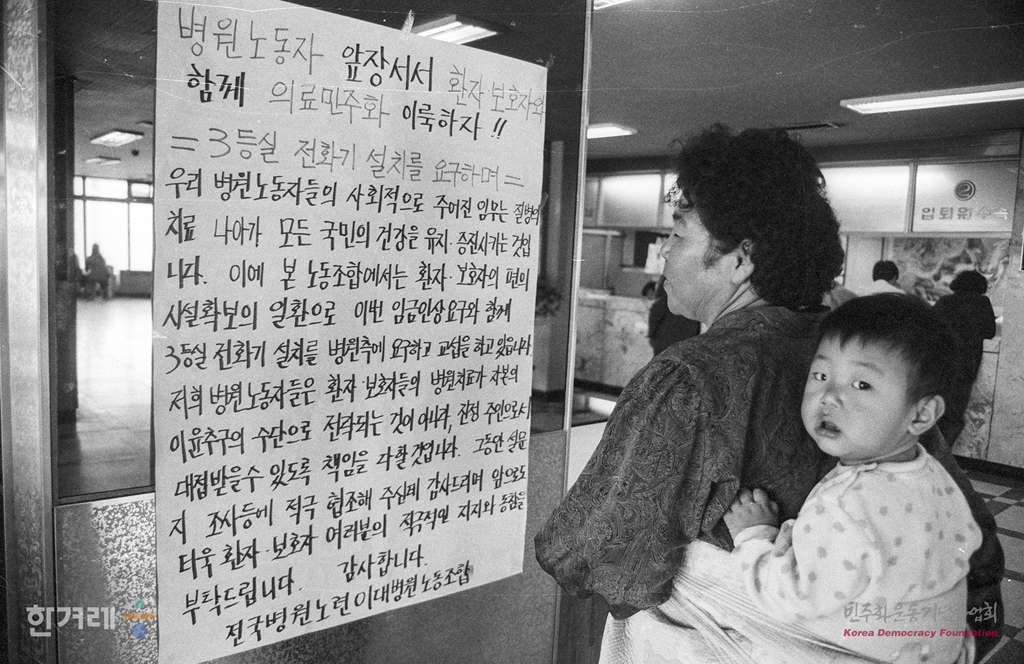 병원노동자 앞장서서 환자 보호자와
함께 의료민주화 이룩하자 !!
= 3등실 전화기 설치를 요구하며 =
우리 병원노동자들의 사회적으로 주어진 임무는 질병의
치료 나아가 모든 국민의 건강을 유지·증진시키는 것입
니다. 이에 본 노동조합에서는 환자·보호자의 편의
시설확보의 일환으로 이번 임금인상요구와 함께
3등실 전화기 설치를 병원측에 요구하고 교섭을 하고 있읍니다.
저희 병원노동자들은 환자·보호자들의 병원치료가 자본의
이윤추구의 수단으로 전락되는 것이 아니라, 진정 주인으로서
대접받을 수 있도록 책임을 다할 것입니다. 그동안 설문
지 조사등에 적극 협조해 주심께 감사드리며 앞으로도
더욱 환자·보호자 여러분의 적극적인 지지와 동참을
부탁드립니다. 감사합니다.
전국병원노련이대병원노동조합
입퇴원수속
한겨레
민주화운동기념사업회
Korea Democracy Foundation